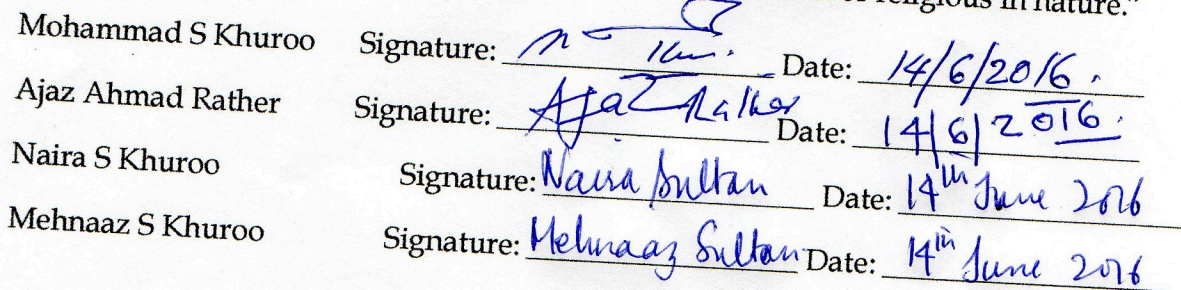 religious in nature."
Mohammad S Khuroo Signature: Date: 14/6/2016.
Ajaz Ahmad Rather Signature: Ajaz Rather Date: 14/6/2016.
Naira S Khuroo Signature: Naira Sultan Date: 14th June 2016
Mehnaaz S Khuroo Signature: Mehnaaz Sultan Date: 14th June 2016